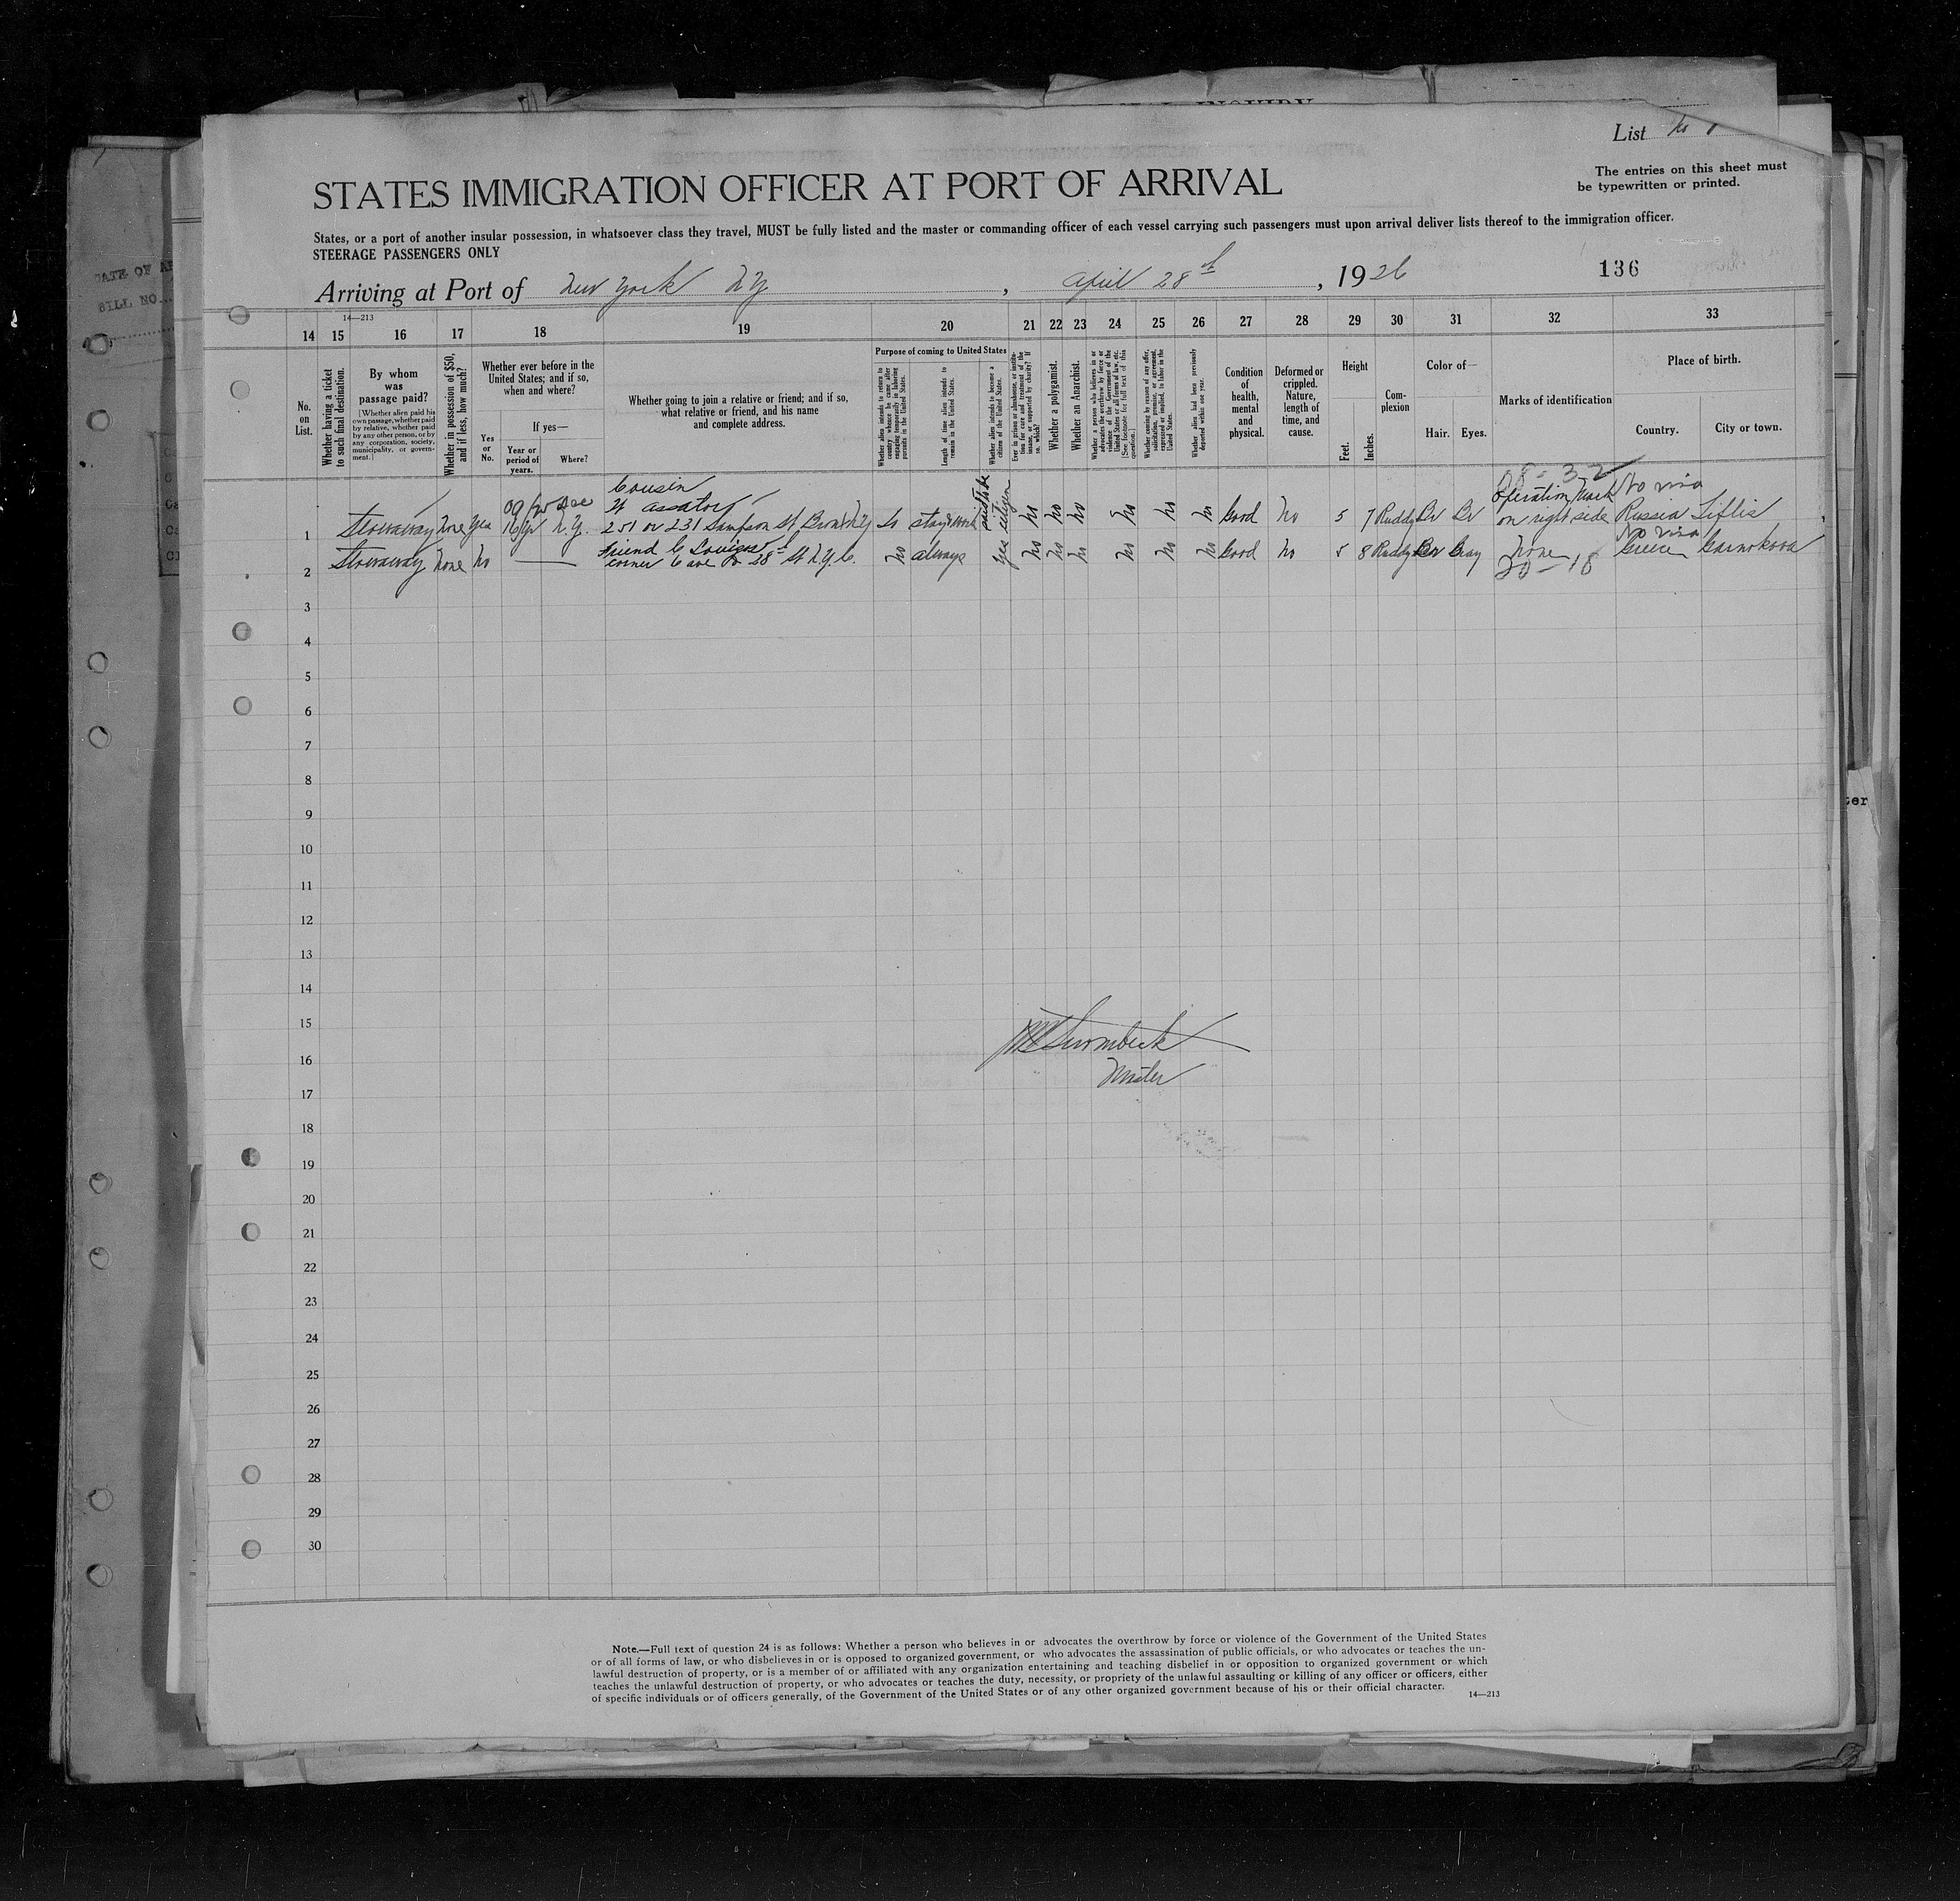 List No 1
The entries on this sheet must
be typewritten or printed.
STATES IMMIGRATION OFFICER AT PORT OF ARRIVAL
States, or a port of another insular possession, in whatsoever class they travel, MUST be fully listed and the master or commanding officer of each vessel carrying such passengers must upon arrival deliver lists thereof to the immigration officer.
STEERAGE PASSENGERS ONLY
Arriving at Port of New York NY, April 28th, 1926
136
14—213
14 15 16 17 18 19 20 21 22 23 24 25 26 27 28 29 30 31 32 33
No.
on
List.
Whether having a ticket
to such final destination.
By whom
was
passage paid?
[Whether alien paid his
own passage, whether paid
by relative, whether paid
by any other person, or by
any corporation, society,
municipality, or govern-
ment.]
Whether in possession of $50,
and if less, how much?
Whether ever before in the
United States; and if so,
when and where?
Yes
or
No.
If yes—
Year or
period of
years.
Where?
Whether going to join a relative or friend; and if so,
what relative or friend, and his name
and complete address.
Purpose of coming to United States
Whether alien intends to return to
country whence he came after
engaging temporarily in laboring
pursuits in the United States.
Length of time alien intends to
remain in the United States.
Whether alien intends to become a
citizen of the United States.
Ever in prison or almshouse, or institu-
tion for care and treatment of the
insane, or supported by charity? If
so, which?
Whether a polygamist.
Whether an Anarchist.
Whether a person who believes in or
advocates the overthrow by force or
violence of the Government of the
United States or all forms of law, etc.
[See footnote for full text of this
question.]
Whether coming by reason of any offer,
solicitation, promise, or agreement,
expressed or implied, to labor in the
United States.
Whether alien had been previously
deported within one year.
Condition
of
health,
mental
and
physical.
Deformed or
crippled.
Nature,
length of
time, and
cause.
Height
Feet.
Inches.
Com-
plexion
Color of—
Hair. Eyes.
Marks of identification
Place of birth.
Country. City or town.
Cousin
08-32
operation mark No visa
1 Stowaway none yes N.Y. 251 or 231 Sampson St Bronx N.Y. no no no no no no no Good no 5 7 Ruddy Br Br on right side Russia Tiflis
friend
No visa
2 Stowaway none no — corner 6 ave & 28th St N.Y.C. no always yes no no no no no no Good no 5 8 Ruddy Br Gray none Greece
20-18
3
4
5
6
7
8
9
10
11
12
13
14
15
16
Master
17
18
19
20
21
22
23
24
25
26
27
28
29
30
Note.—Full text of question 24 is as follows: Whether a person who believes in or advocates the overthrow by force or violence of the Government of the United States
or of all forms of law, or who disbelieves in or is opposed to organized government, or who advocates the assassination of public officials, or who advocates or teaches the un-
lawful destruction of property, or is a member of or affiliated with any organization entertaining and teaching disbelief in or opposition to organized government or which
teaches the unlawful destruction of property, or who advocates or teaches the duty, necessity, or propriety of the unlawful assaulting or killing of any officer or officers, either
of specific individuals or of officers generally, of the Government of the United States or of any other organized government because of his or their official character.
14—213